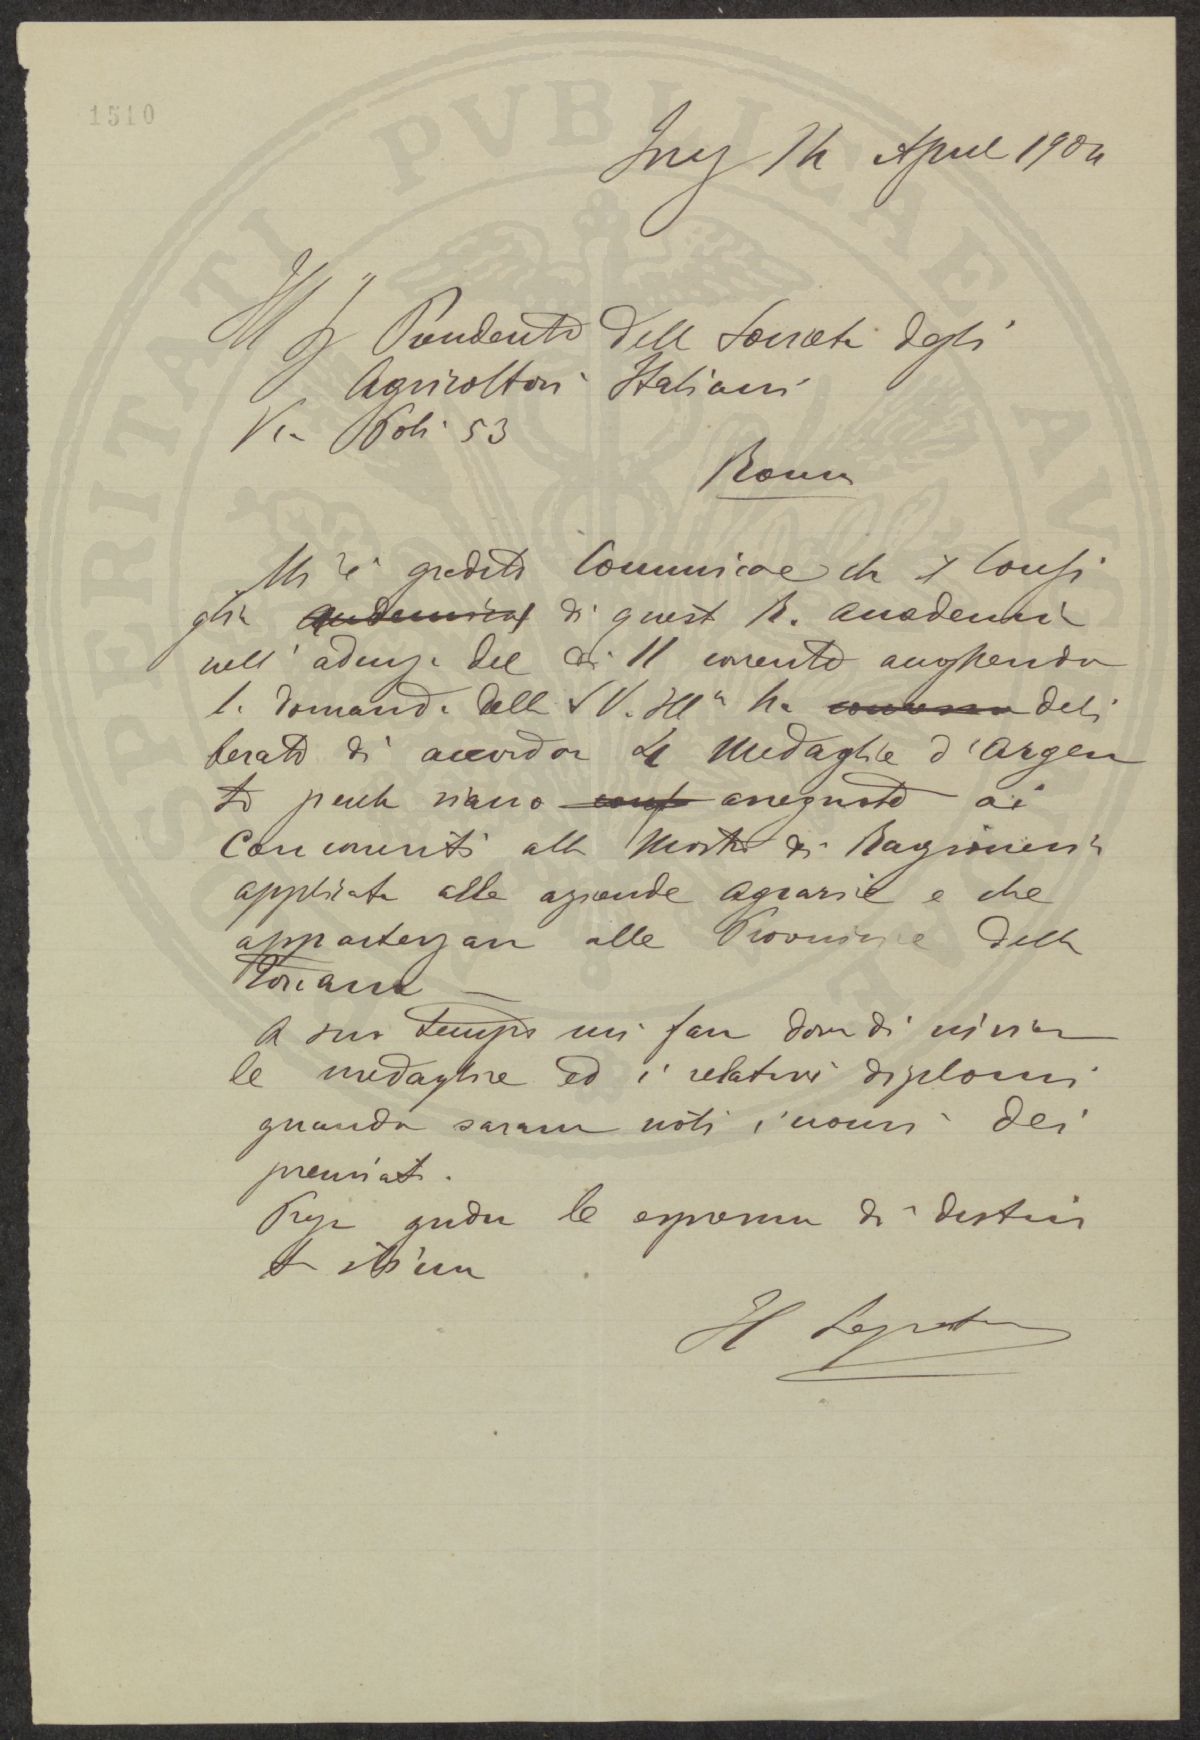 1510
14 Aprile 1904
Ill Sg Presidente della Società degli
Agricoltori Italiani
Via Poli 53
Roma
Mi è gradito Comunicare che il Consi
glio accademico di questa R. Accademia
nell'adunza del dì 11 corrente accogliendo
la domanda della S V. Illa ha concesso deli
berato di accordare 4 Medaglie d'Argen
to perché siano conf assegnate ai
Concorrenti alla Mostra di Ragioneria
applicata alle aziende agrarie e che
appartengano alle Provincie della
Toscana
A suo tempo mi farò dovere di inviare
le medaglie ed i relativi diplomi
quando saranno noti i nomi dei
premiati.
Prego gradire le espressioni di distin
ta stima
Il Segretario
PROSPERITATI PVBLICAE AVGENDAE